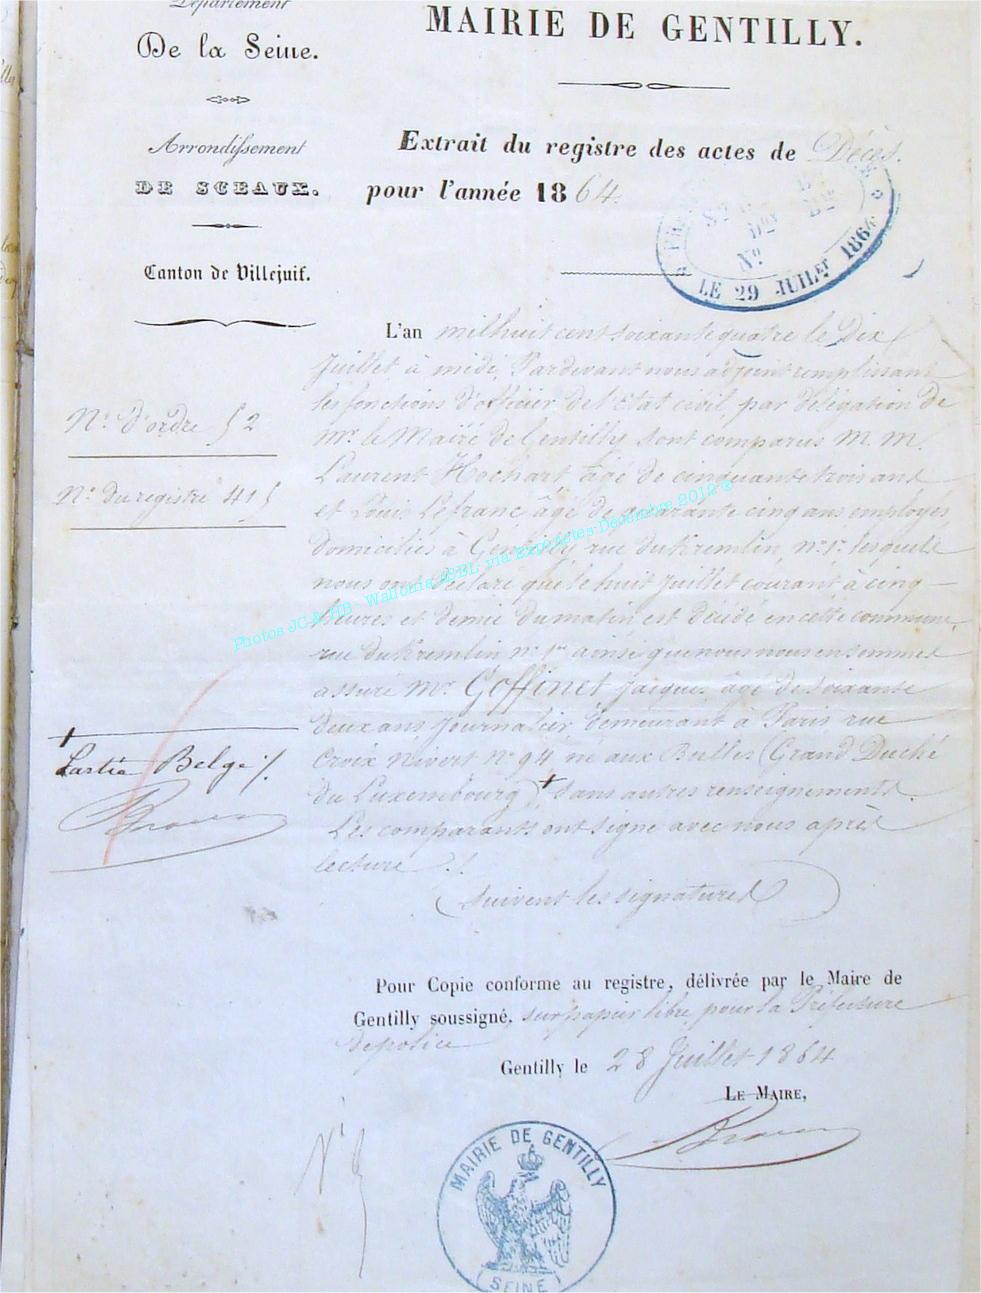 Département
De la Seine.
Arrondissement
DE SCEAUX.
Canton de Villejuif.
N° d'ordre 52
N° du registre 415
MAIRIE DE GENTILLY.
Extrait du registre des actes de Décès.
pour l'année 1864.
LE 29 JUILET 1864
L'an mil huit cent soixante quatre le Dix
Juillet à midi, Pardevant nous adjoint remplissant
les fonctions d'officier de l'Etat civil, par délégation de
Mr le Maire de Gentilly sont comparus M. M.
Laurent Hochart âgé de cinquante trois ans
et Louis Lefranc âgé de quarante cinq ans employés
domiciliés à Gentilly rue du Kremlin, n° 1er lesquels
nous ont déclaré que le huit Juillet courant à cinq
heures et demie du matin est décédé en cette commune
rue du Kremlin n° 1er ainsi que nous nous en sommes
assuré Mr Goffinet Jacques, âgé de soixante
deux ans Journalier, demeurant à Paris rue
Croix Nivert n° 94 né aux Bulles (Grand Duché
du Luxembourg) + sans autres renseignements.
Les comparants ont signé avec nous après
lecture ./.
(Suivent les signatures)
+ Partie Belge ./.
Pour Copie conforme au registre, délivrée par le Maire de
Gentilly soussigné, sur papier libre pour la Préfecture
de police
Gentilly le 28 Juillet 1864
LE MAIRE,
MAIRIE DE GENTILLY
(SEINE)
Photos JC & HB - Wallonia ASBL via Expe-actes Décembre 2012 ©